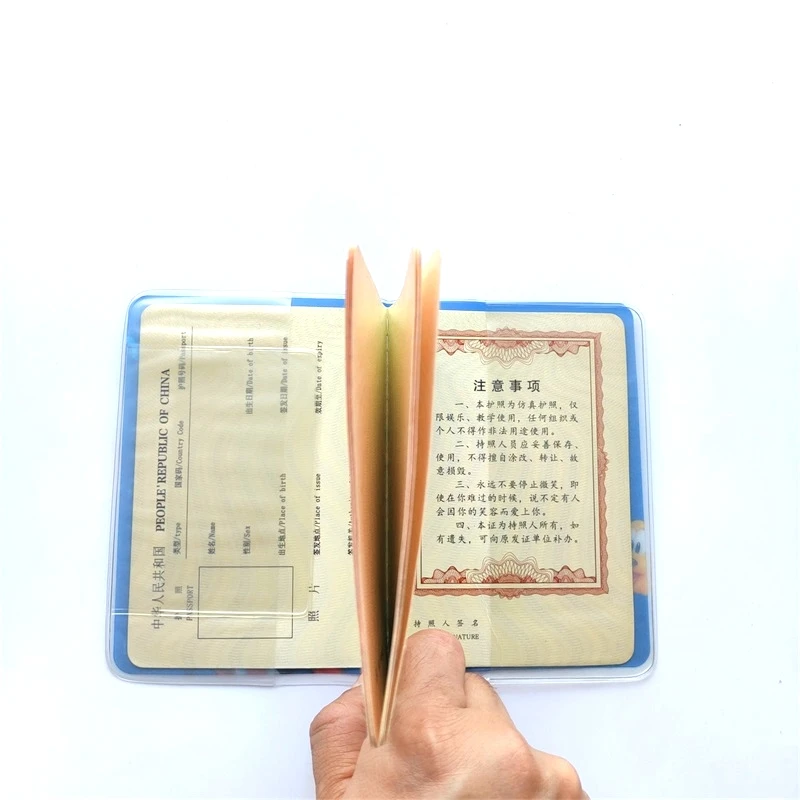 中华人民共和国 PEOPLE'REPUBLIC OF CHINA
护 照
PASSPORT
类型/type 国家码/Country Code 护照号码/Passport
姓名/Name
性别/Sex 出生日期/Date of birth
出生地点/Place of birth 签发日期/Date of issue
签发地点/Place of issue 有效期至/Date of expiry
照 片
注意事项
一、本护照为仿真护照，仅
限娱乐、教学使用，任何组织或
个人不得作非法用途使用。
二、持照人员应妥善保存、
使用，不得擅自涂改、转让、故
意损毁。
三、永远不要停止微笑，即
使在你难过的时候，说不定有人
会因你的笑容而爱上你。
四、本证为持照人所有，如
有遗失，可向原发证单位补办。
持照人签名